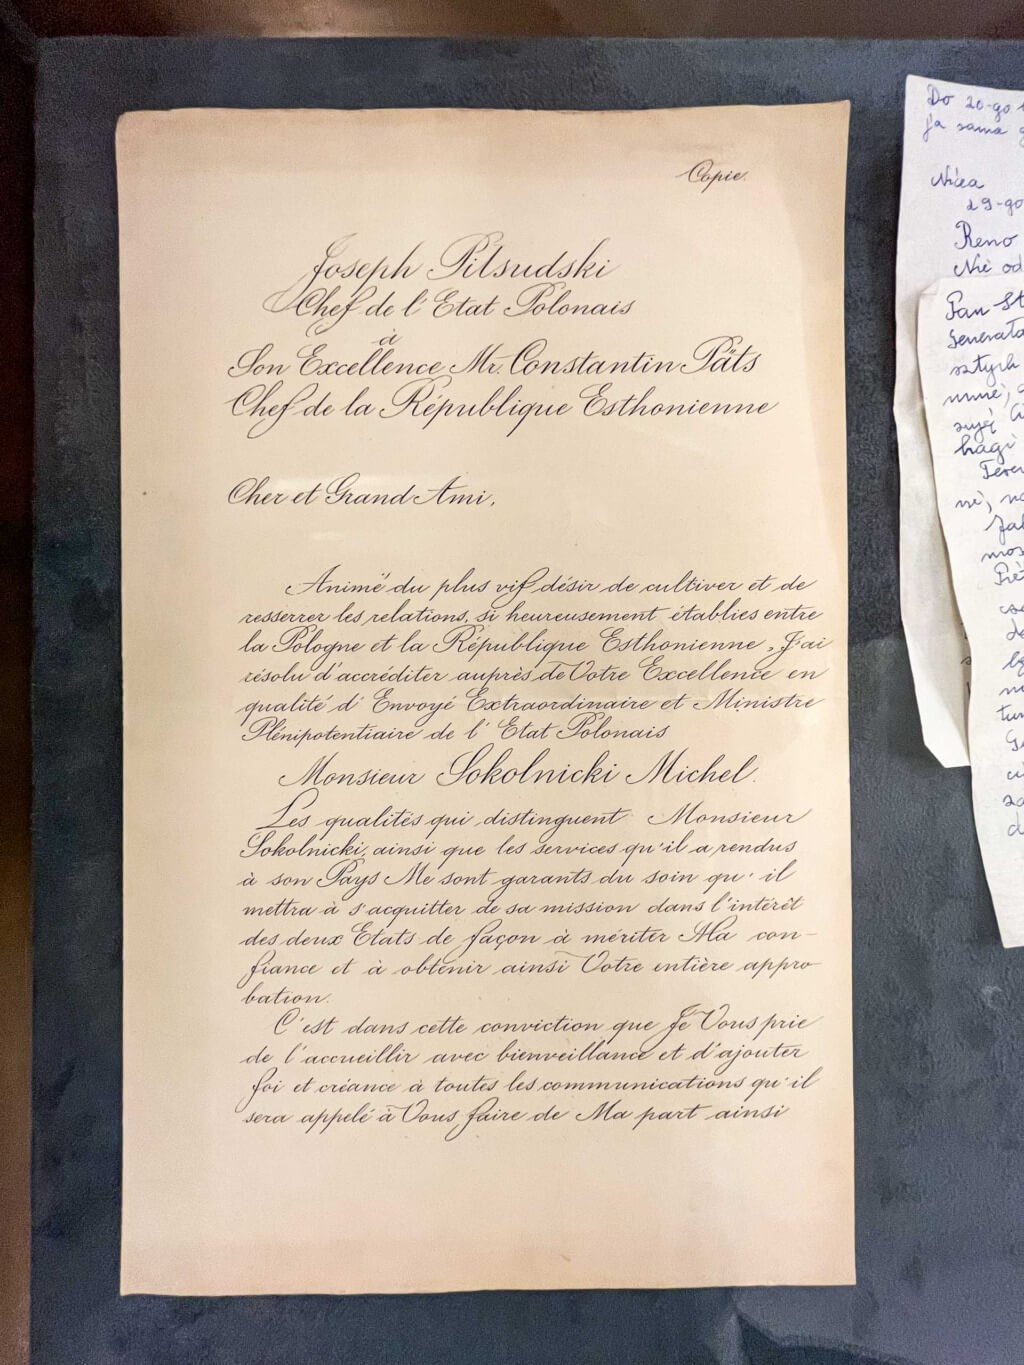 Copie.
Joseph Pilsudski
Chef de l'Etat Polonais
à
Son Excellence Mr. Constantin Päts
Chef de la République Esthonienne
Cher et Grand Ami,
Animé du plus vif désir de cultiver et de
resserrer les relations, si heureusement établies entre
la Pologne et la République Esthonienne, J'ai
résolu d'accréditer auprès de Votre Excellence en
qualité d'Envoyé Extraordinaire et Ministre
Plénipotentiaire de l'Etat Polonais
Monsieur Sokolnicki Michel.
Les qualités qui distinguent Monsieur
Sokolnicki, ainsi que les services qu'il a rendus
à son Pays Me sont garants du soin qu'il
mettra à s'acquitter de sa mission dans l'intérêt
des deux Etats de façon à mériter Ma con-
fiance et à obtenir ainsi Votre entière appro-
bation.
C'est dans cette conviction que Je Vous prie
de l'accueillir avec bienveillance et d'ajouter
foi et créance à toutes les communications qu'il
sera appelé à Vous faire de Ma part ainsi
Do 20-go
ja sama
Nicea
29-go
Reno
Nie od
Pan St